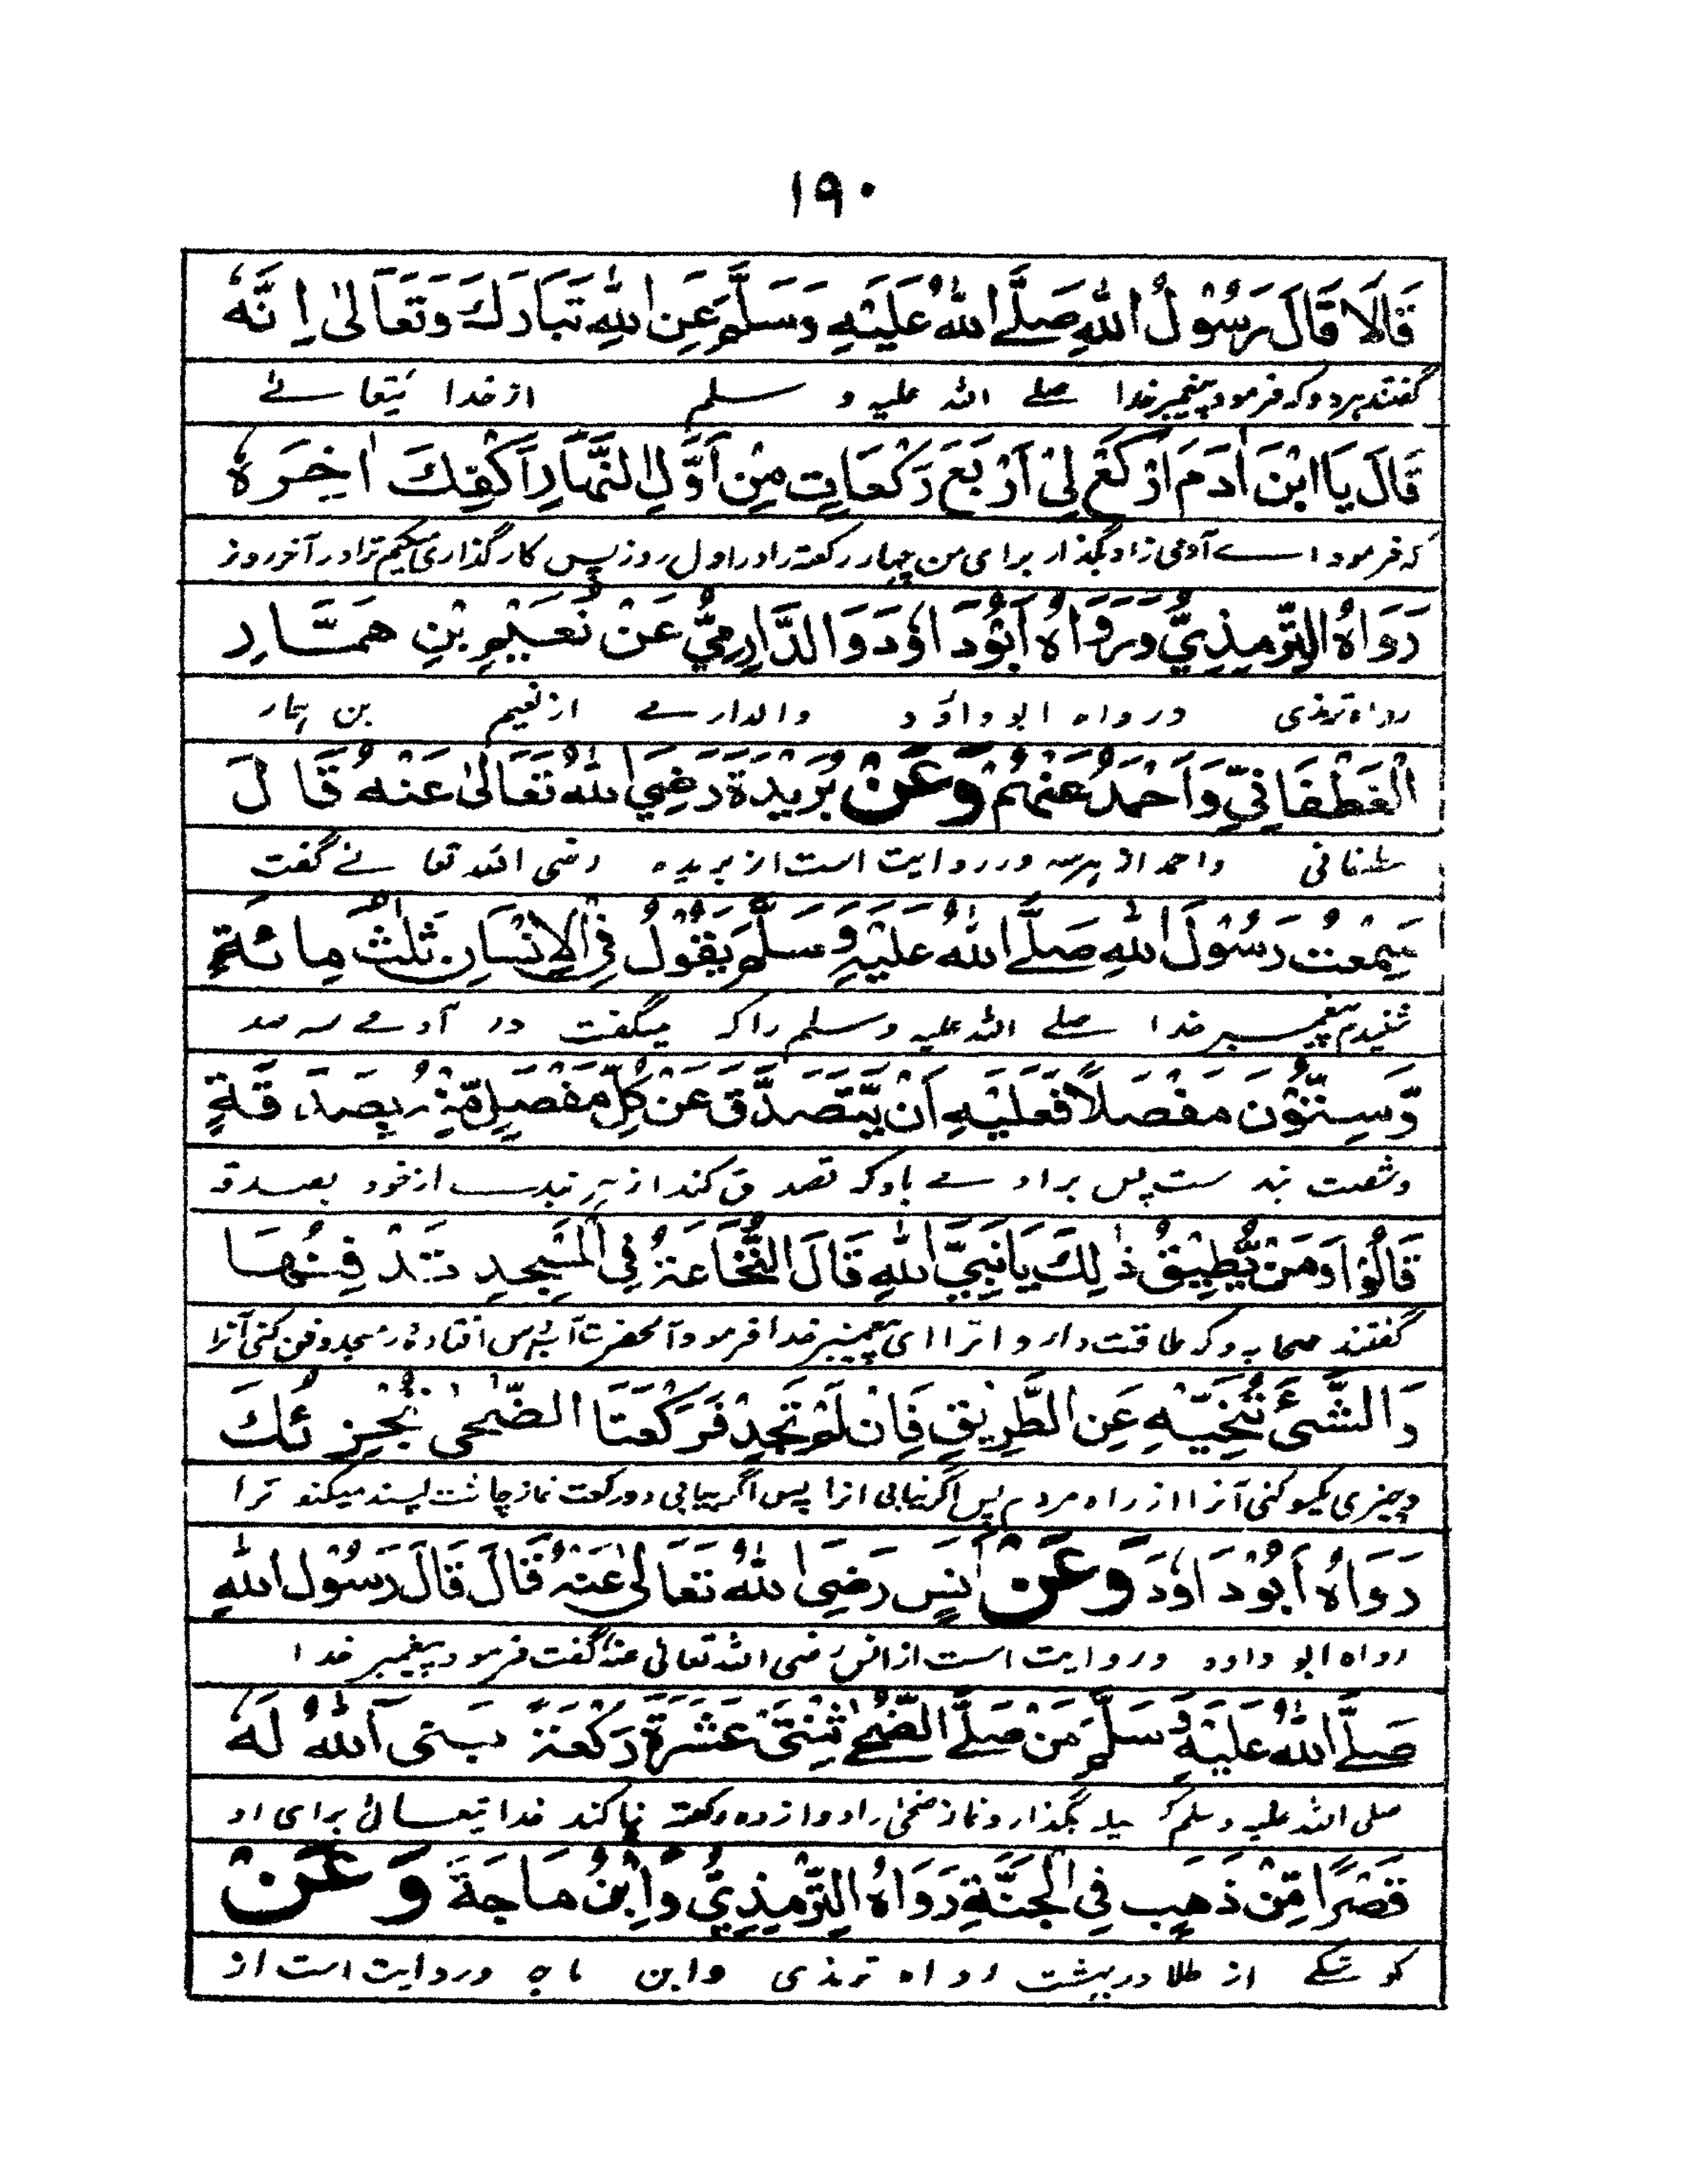 ١٩٠
قَالَا قَالَ رَسُوْلُ اللهِ صَلَّے اللهُ عَلَيْهِ وَسَلَّمَ عَنِ اللهِ تَبَارَكَ وَتَعَالٰى اِنَّهٗ
گفتند ہردو کہ فرمود پیغمبر خدا صلے اللہ علیہ و سلم از خدا یتعالے
قَالَ يَا ابْنَ اٰدَمَ ارْكَعْ لِيْ اَرْبَعَ رَكْعَاتٍ مِنْ اَوَّلِ النَّهَارِ اَكْفِكَ اٰخِرَهٗ
کہ فرمود اے آدمی زاد بگذار برای من چہار رکعتہ را در اول روز پس کارگذاری میکنم ترا در آخر روز
رَوَاهُ التِّرْمِذِيُّ وَرَوَاهُ اَبُوْدَاوٗدَ وَالدَّارِمِيُّ عَنْ نُعَيْمِ بْنِ هَمَّارِ
رواہ ترمذی و رواہ ابو داؤد والدارمے از نعیم بن ہمار
الْغَطْفَانِيِّ وَاَحْمَدُ عَنْهُمْ وَعَنْ بُرَيْدَةَ رَضِيَ اللهُ تَعَالٰى عَنْهُ قَالَ
غطفانی واحمد از ہرسہ و روایت است از بریدہ رضی اللہ تعالےٰ گفت
سَمِعْتُ رَسُوْلَ اللهِ صَلَّے اللهُ عَلَيْهِ وَسَلَّمَ يَقُوْلُ فِي الْاِنْسَانِ ثَلٰثُ مِائَةٍ
شنیدم پیغمبر خدا صلے اللہ علیہ وسلم را کہ میگفت در آدمے سہ صد
وَّسِتُّوْنَ مَفْصَلًا فَعَلَيْهِ اَنْ يَّتَصَدَّقَ عَنْ كُلِّ مَفْصَلٍ مِّنْهُ بِصَدَقَةٍ
و شصت بند ست پس براو سے باد کہ تصدق کند از ہر بندے از خود بصدقہ
قَالُوْا وَمَنْ يُّطِيْقُ ذٰلِكَ يَا نَبِيَّ اللهِ قَالَ النُّخَاعَةُ فِي الْمَسْجِدِ تَدْفِنُهَا
گفتند صحابہ و کہ طاقت دارد اترا ای پیغمبر خدا فرمود آنحضرت آب افتادہ در مسجد دفن کنی آنرا
وَالشَّىْءُ تُنَحِّيْهِ عَنِ الطَّرِيْقِ فَاِنْ لَّمْ تَجِدْ فَرَكْعَتَا الضُّحٰى تُجْزِئُكَ
وچیزی یکسو کنی آنرا از راہ مردم پس اگر نیابی انرا پس اگر نیابی دو رکعت نماز چاشت بسند میکند ترا
رَوَاهُ اَبُوْدَاوٗدَ وَعَنْ اَنَسٍ رَضِيَ اللهُ تَعَالٰى عَنْهُ قَالَ قَالَ رَسُوْلُ اللهِ
رواہ ابو داود و روایت است از انس رضی اللہ تعالی عنہ گفت فرمود پیغمبر خدا
صَلَّے اللهُ عَلَيْهِ وَسَلَّمَ مَنْ صَلَّے الضُّحٰے ثِنْتَيْ عَشْرَةَ رَكْعَةً بَنَى اللهُ لَهٗ
صلی اللہ علیہ وسلم کہ بگذارد نماز ضحیٰ را دوازدہ رکعتہ بنا کند خدا تیعالیٰ برای او
قَصْرًا مِّنْ ذَهَبٍ فِي الْجَنَّةِ رَوَاهُ التِّرْمِذِيُّ وَابْنُ مَاجَةَ وَعَنْ
کوشکے از طلا در بہشت رواہ ترمذی وابن ماجہ و روایت است از